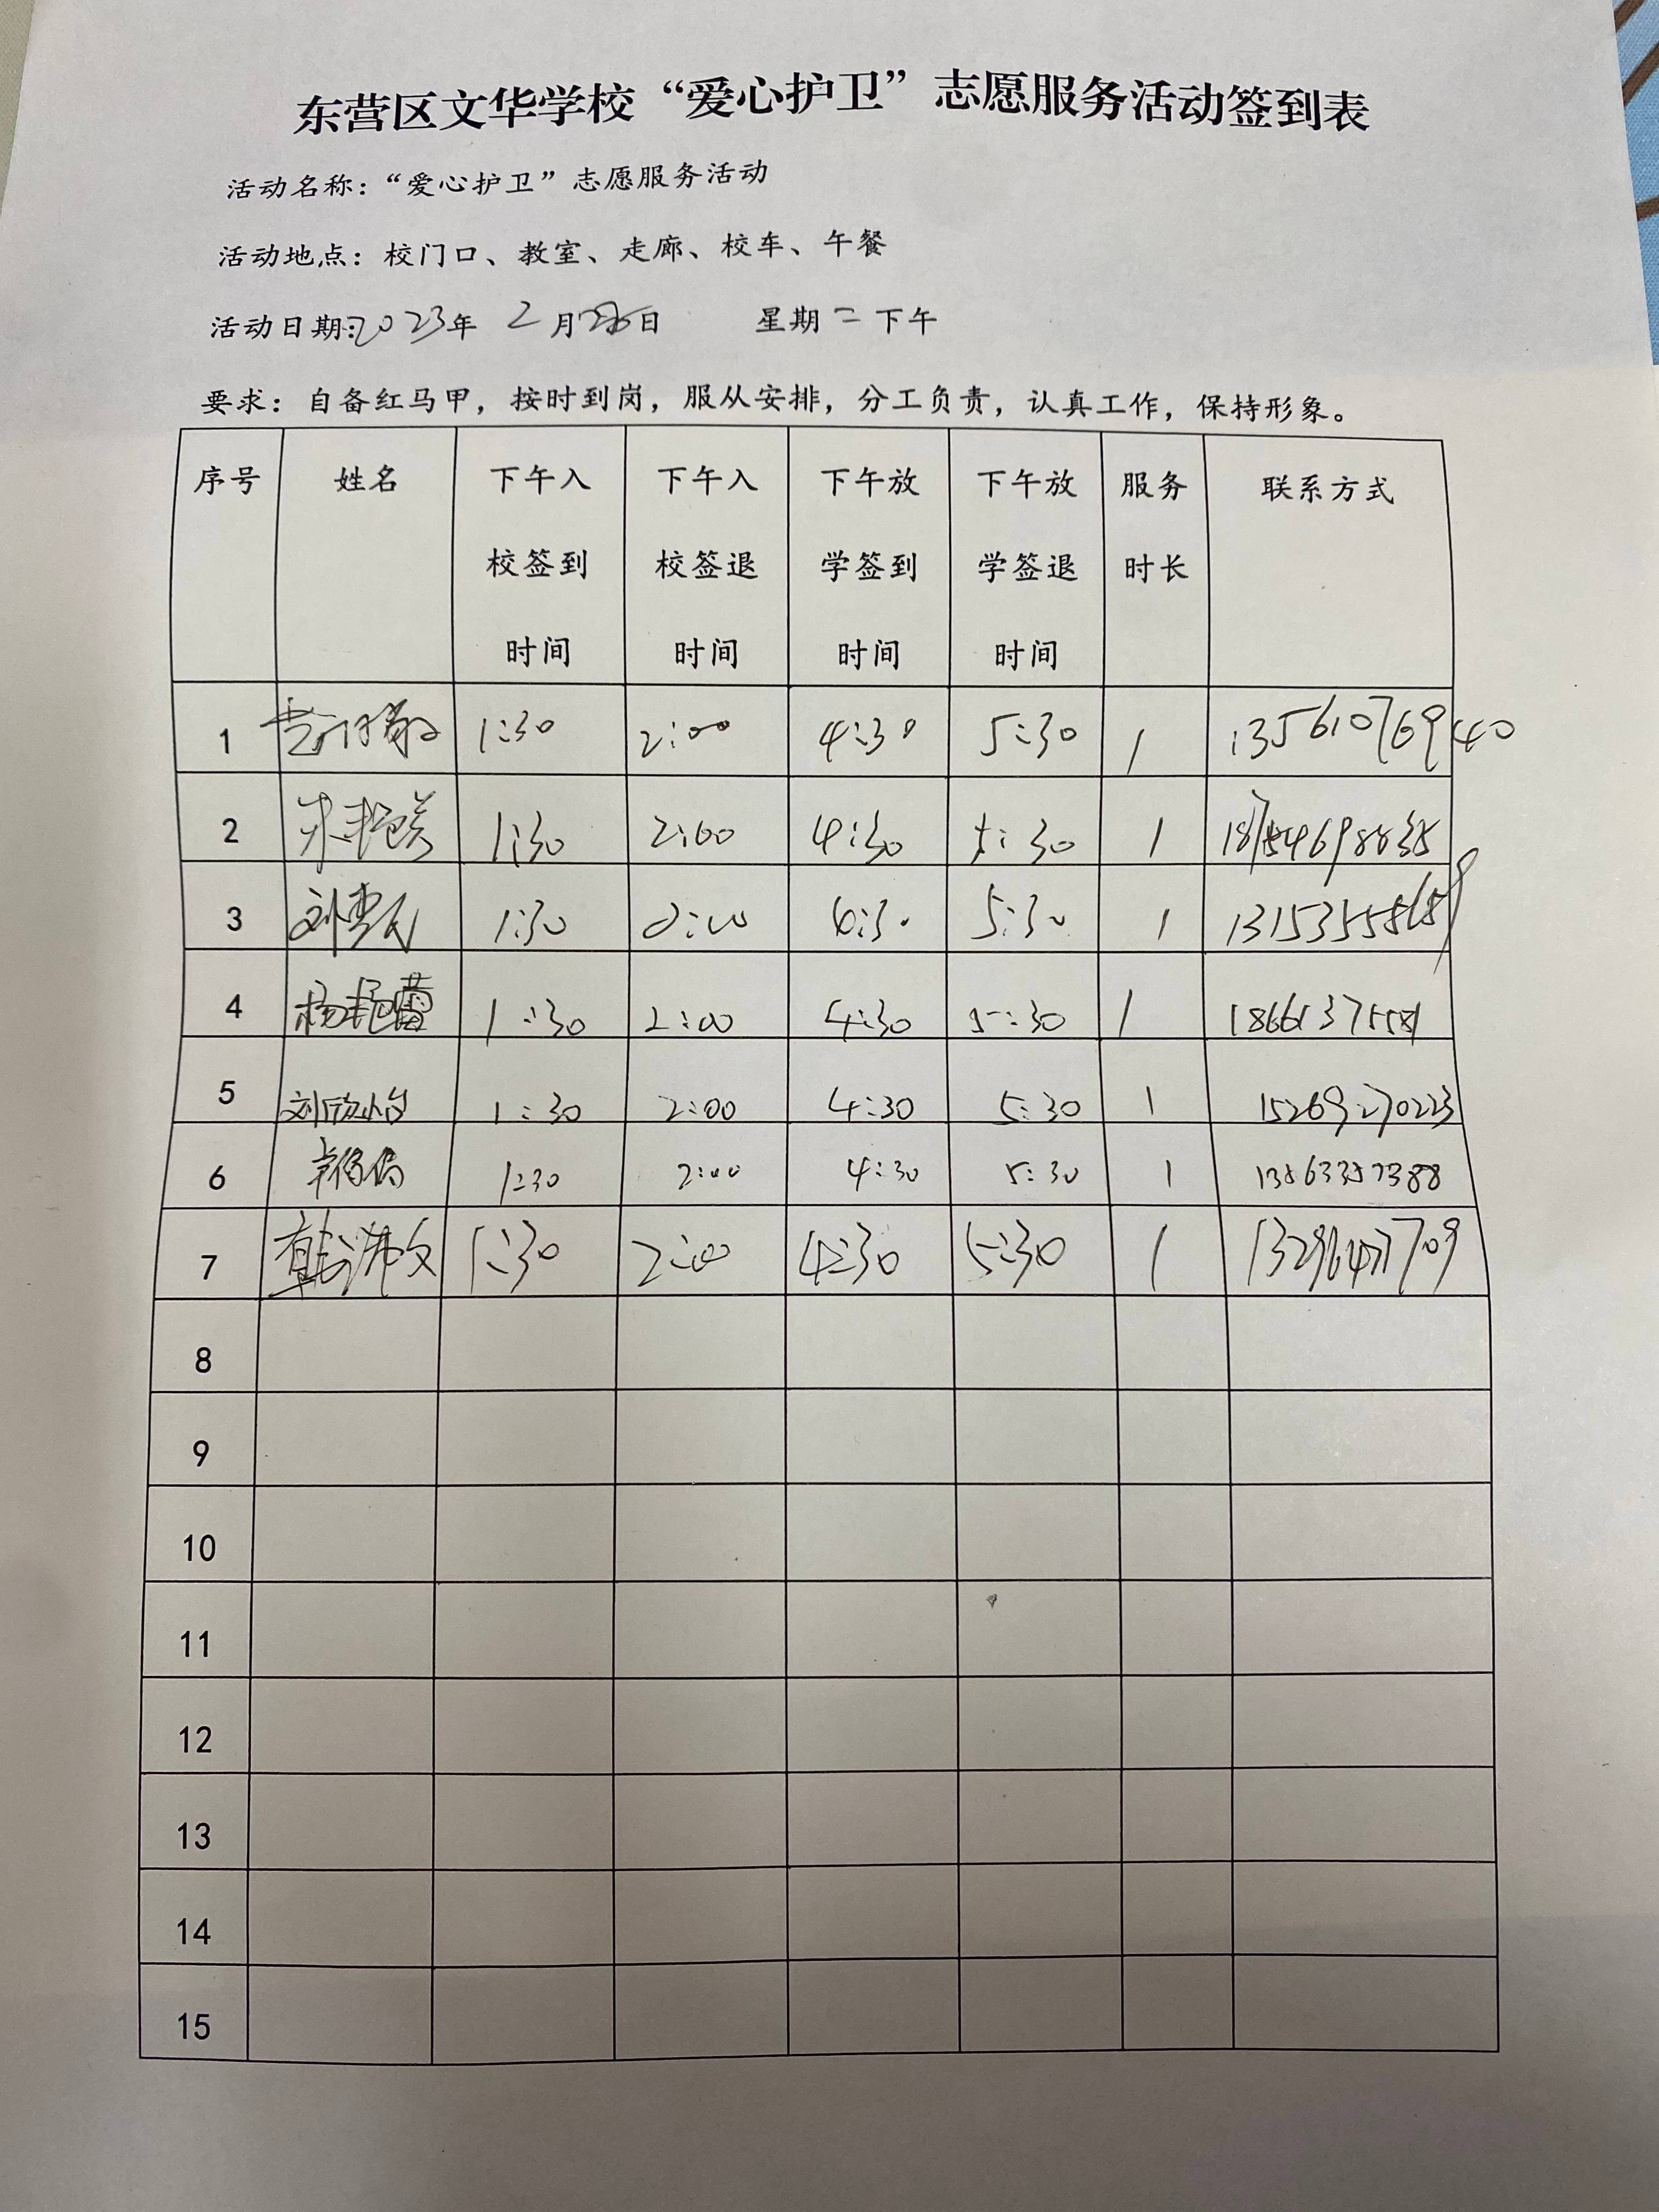 东营区文华学校“爱心护卫”志愿服务活动签到表
活动名称：“爱心护卫”志愿服务活动
活动地点：校门口、教室、走廊、校车、午餐
活动日期：2023年 2月 日 星期二下午
要求：自备红马甲，按时到岗，服从安排，分工负责，认真工作，保持形象。
序号 姓名 下午入校签到时间 下午入校签退时间 下午放学签到时间 下午放学签退时间 服务时长 联系方式
1 1:30 2:00 4:30 5:30 1 13561076940
2 1:30 2:00 4:30 5:30 1
3 1:30 2:00 4:30 5:30 1
4 杨艳蕾 1:30 2:00 4:30 5:30 1
5 1:30 2:00 4:30 5:30 1 15269270223
6 1:30 2:00 4:30 5:30 1
7 1:30 2:00 4:30 5:30 1
8
9
10
11
12
13
14
15